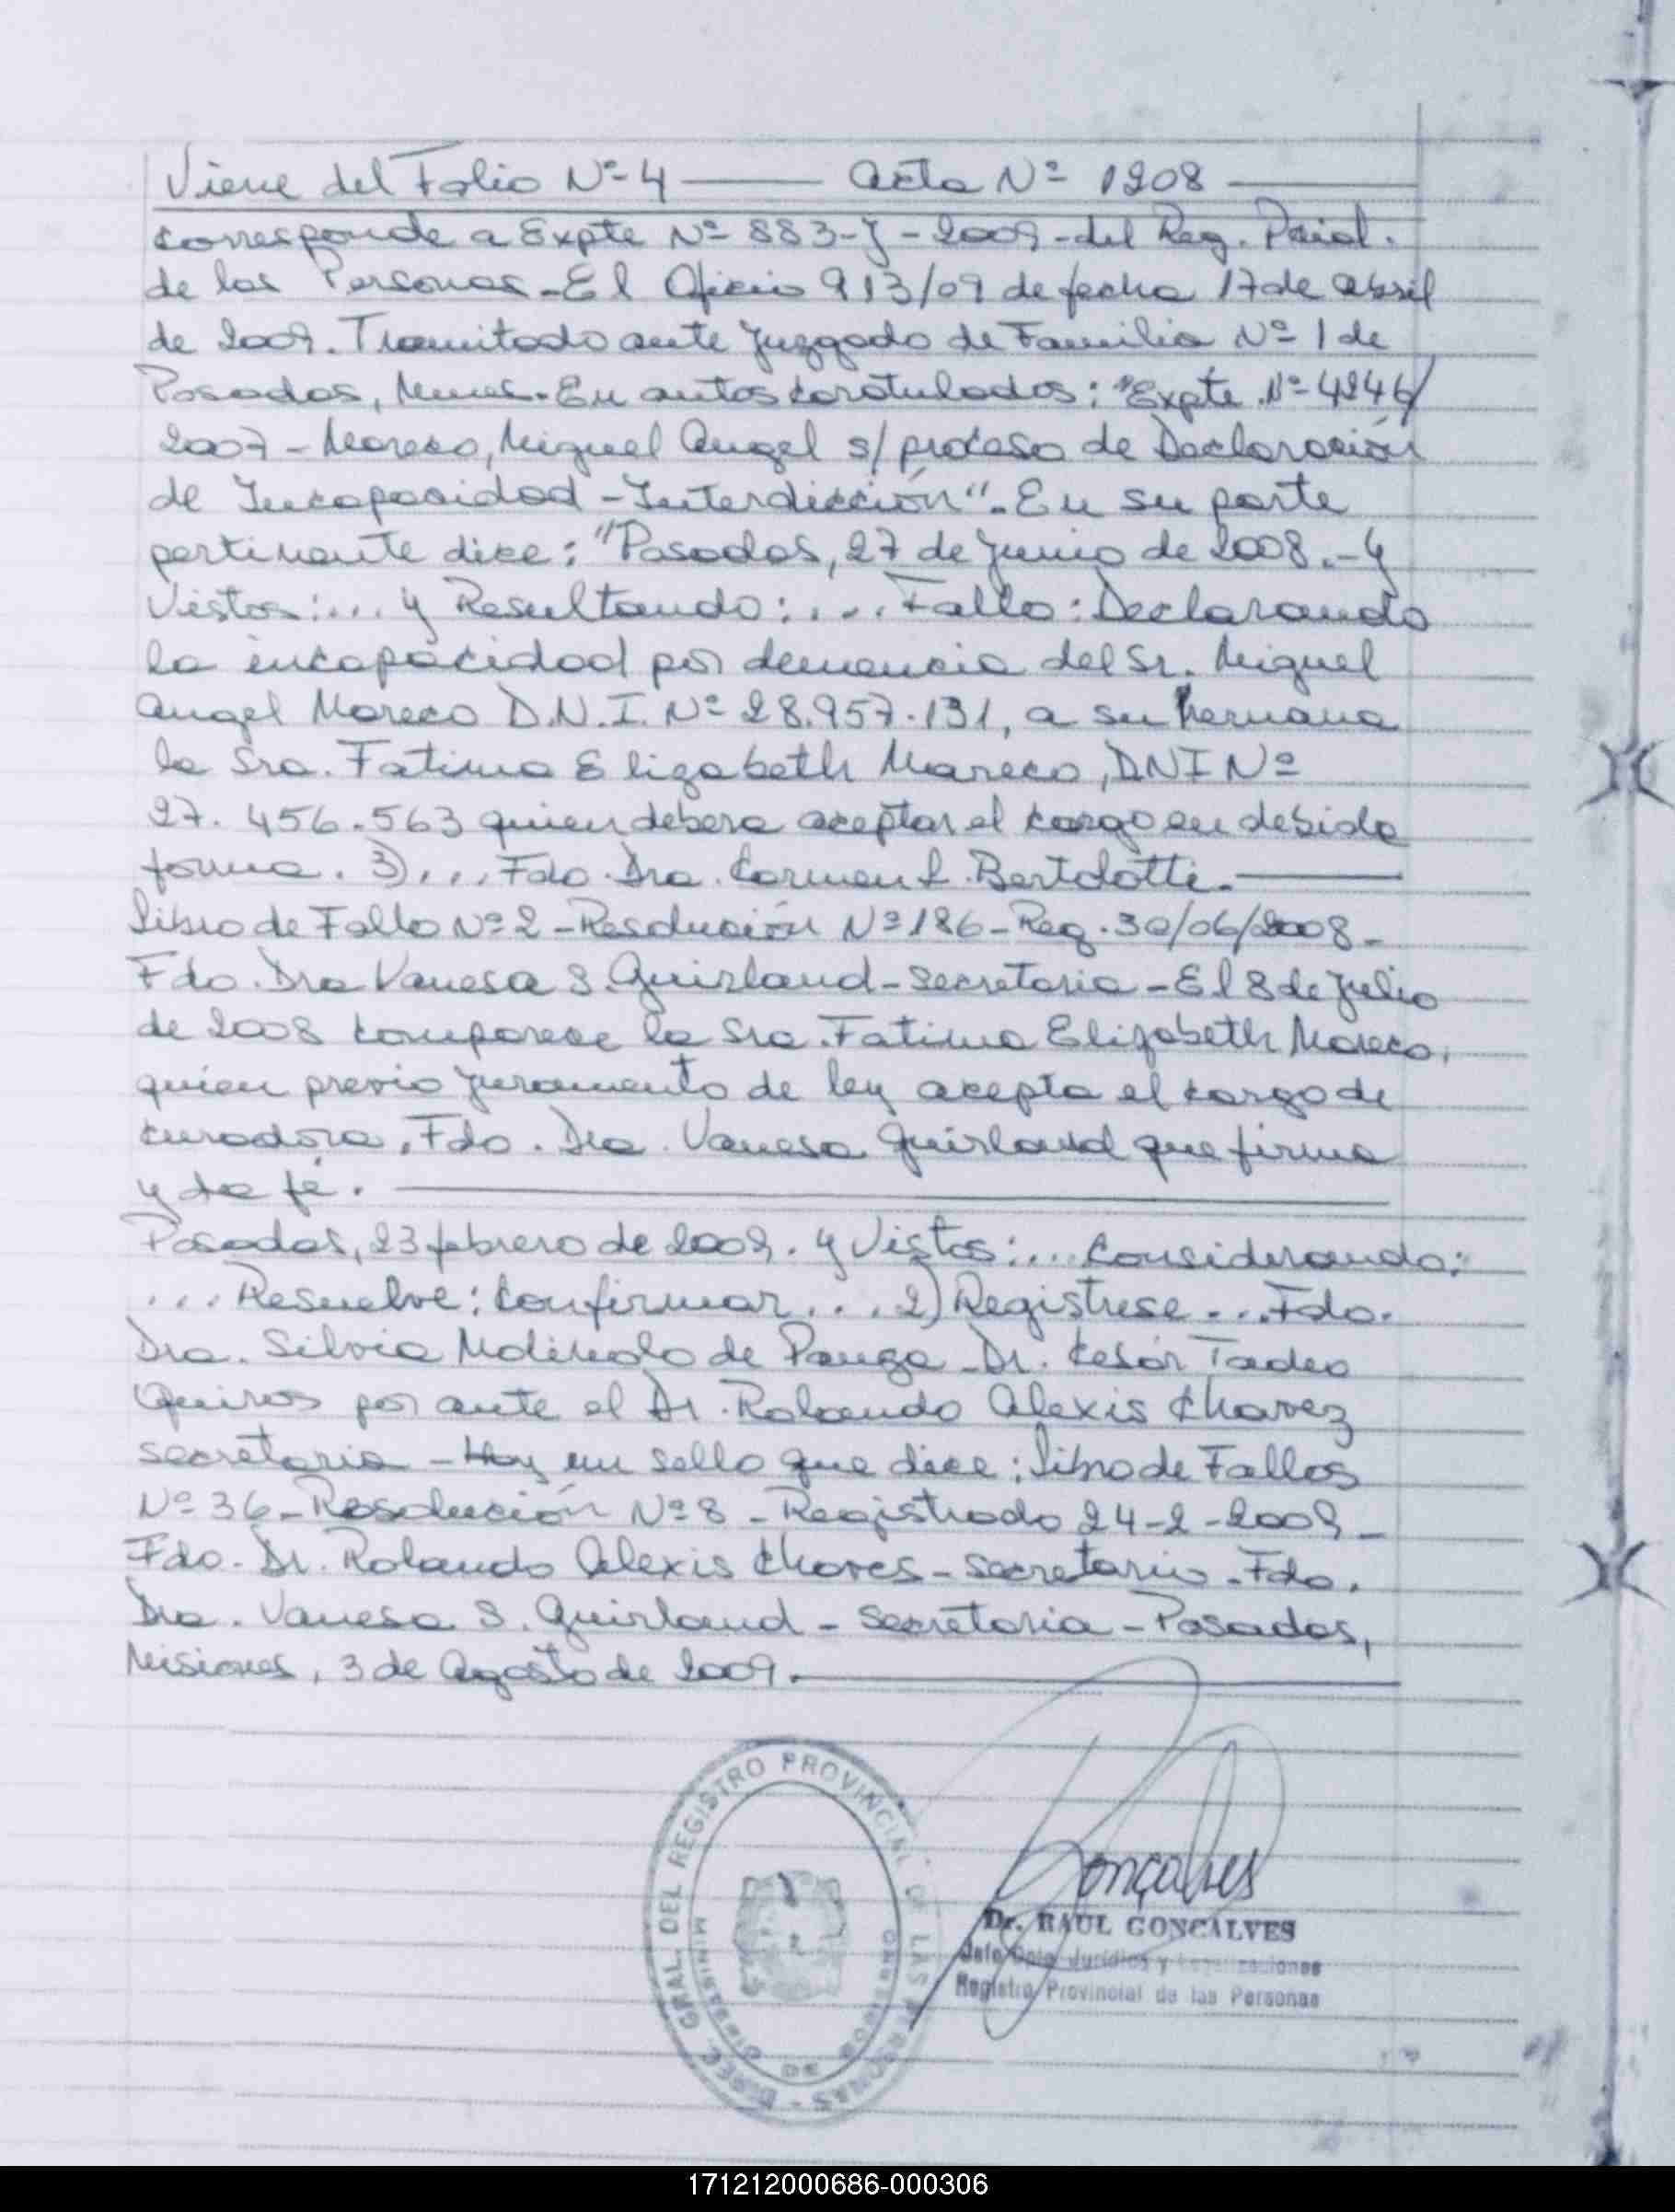 Viene del Folio Nº 4 —— Acta Nº 1208 ——
corresponde a Expte Nº 883-J-2009-del Reg. Pcial.
de las Personas.-El Oficio 913/09 de fecha 17 de abril
de 2009. Tramitado ante Juzgado de Familia Nº 1 de
Posadas, Mnes. En autos caratulados: "Expte. Nº 4246/
2007 - Mareco, Miguel Angel s/ proceso de Declaración
de Incapacidad - Interdicción". En su parte
pertinente dice: "Posadas, 27 de Junio de 2008.- Y
Vistos:... y Resultando:.... Fallo: Declarando
la incapacidad por demencia del Sr. Miguel
Angel Mareco D.N.I. Nº 28.957.131, a su hermana
la Sra. Fatima Elizabeth Mareco, DNI Nº
27.456.563 quien debera aceptar el cargo en debida
forma. 3).... Fdo. Dra. Carmen L. Bertolotti. ——
Libro de Fallo Nº 2 - Resolución Nº 186 - Reg. 30/06/2008 -
Fdo. Dra Vanesa S. Guirland - Secretaria - El 8 de Julio
de 2008 comparece la Sra. Fatima Elizabeth Mareco,
quien previo juramento de ley acepta el cargo de
curadora. Fdo. Dra. Vanesa Guirland que firma
y da fé. ——
Posadas, 23 febrero de 2009. y Vistos:... Considerando:
... Resuelve: Confirmar.... 2) Registrese... Fdo.
Dra. Silvia Molinolo de Panza - Dr. Cesár Tadeo
Quiros por ante el Dr. Rolando Alexis Chavez
secretario - Hay un sello que dice: Libro de Fallos
Nº 36 - Resolución Nº 8 - Registrado 24-2-2009 -
Fdo. Dr. Rolando Alexis Chaves - Secretario - Fdo.
Dra. Vanesa S. Guirland - Secretaria - Posadas,
Misiones, 3 de Agosto de 2009. ——
DIREC. GRAL. DEL REGISTRO PROVINCIAL DE LAS PERSONAS -
MINISTERIO DE GOBIERNO
Gonçalves
Dr. RAUL GONCALVES
Jefe Dpto. Jurídico y Legalizaciones
Registro Provincial de las Personas
171212000686-000306